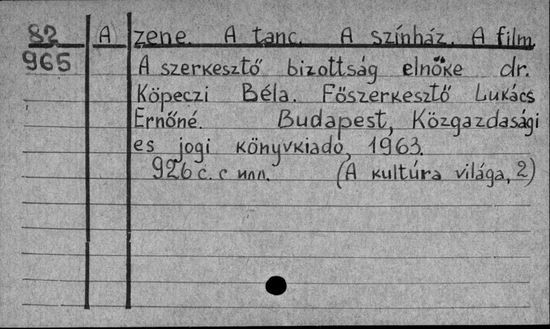 82 A zene. A tanc. A színház. A film
965 A szerkesztő bizottság elnőke dr.
Köpeczi Béla. Főszerkesztő Lukács
Ernőné. Budapest, Közgazdasági
es jogi könyvkiado, 1963.
926 с. с илл. (A kultúra világa, 2)